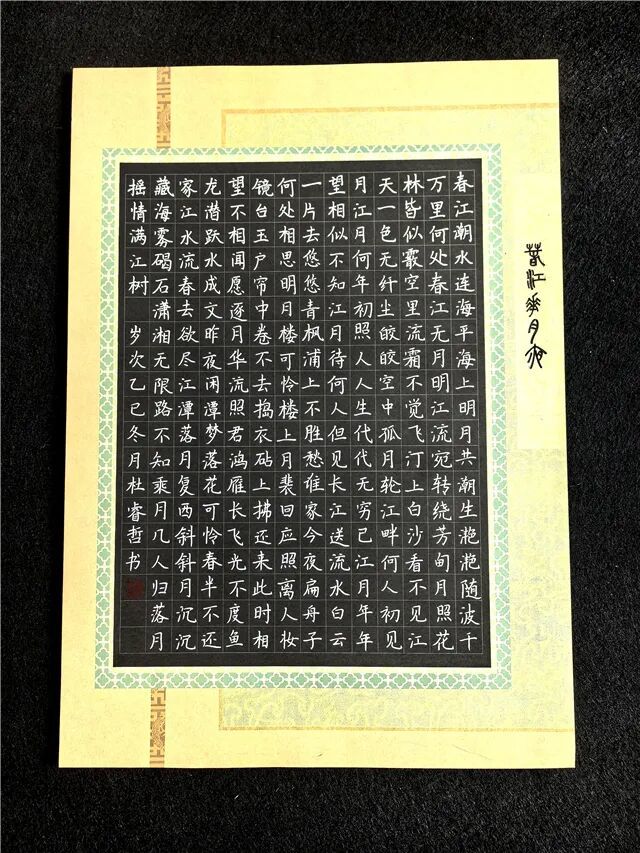 春江花月夜
春江潮水连海平海上明月共潮生滟滟随波千
万里何处春江无月明江流宛转绕芳甸月照花
林皆似霰空里流霜不觉飞汀上白沙看不见江
天一色无纤尘皎皎空中孤月轮江畔何人初见
月江月何年初照人人生代代无穷已江月年年
望相似不知江月待何人但见长江送流水白云
一片去悠悠青枫浦上不胜愁谁家今夜扁舟子
何处相思明月楼可怜楼上月裴回应照离人妆
镜台玉户帘中卷不去捣衣砧上拂还来此时相
望不相闻愿逐月华流照君鸿雁长飞光不度鱼
龙潜跃水成文昨夜闲潭梦落花可怜春半不还
家江水流春去欲尽江潭落月复西斜斜月沉沉
藏海雾碣石潇湘无限路不知乘月几人归落月
摇情满江树 岁次乙巳冬月杜睿哲书